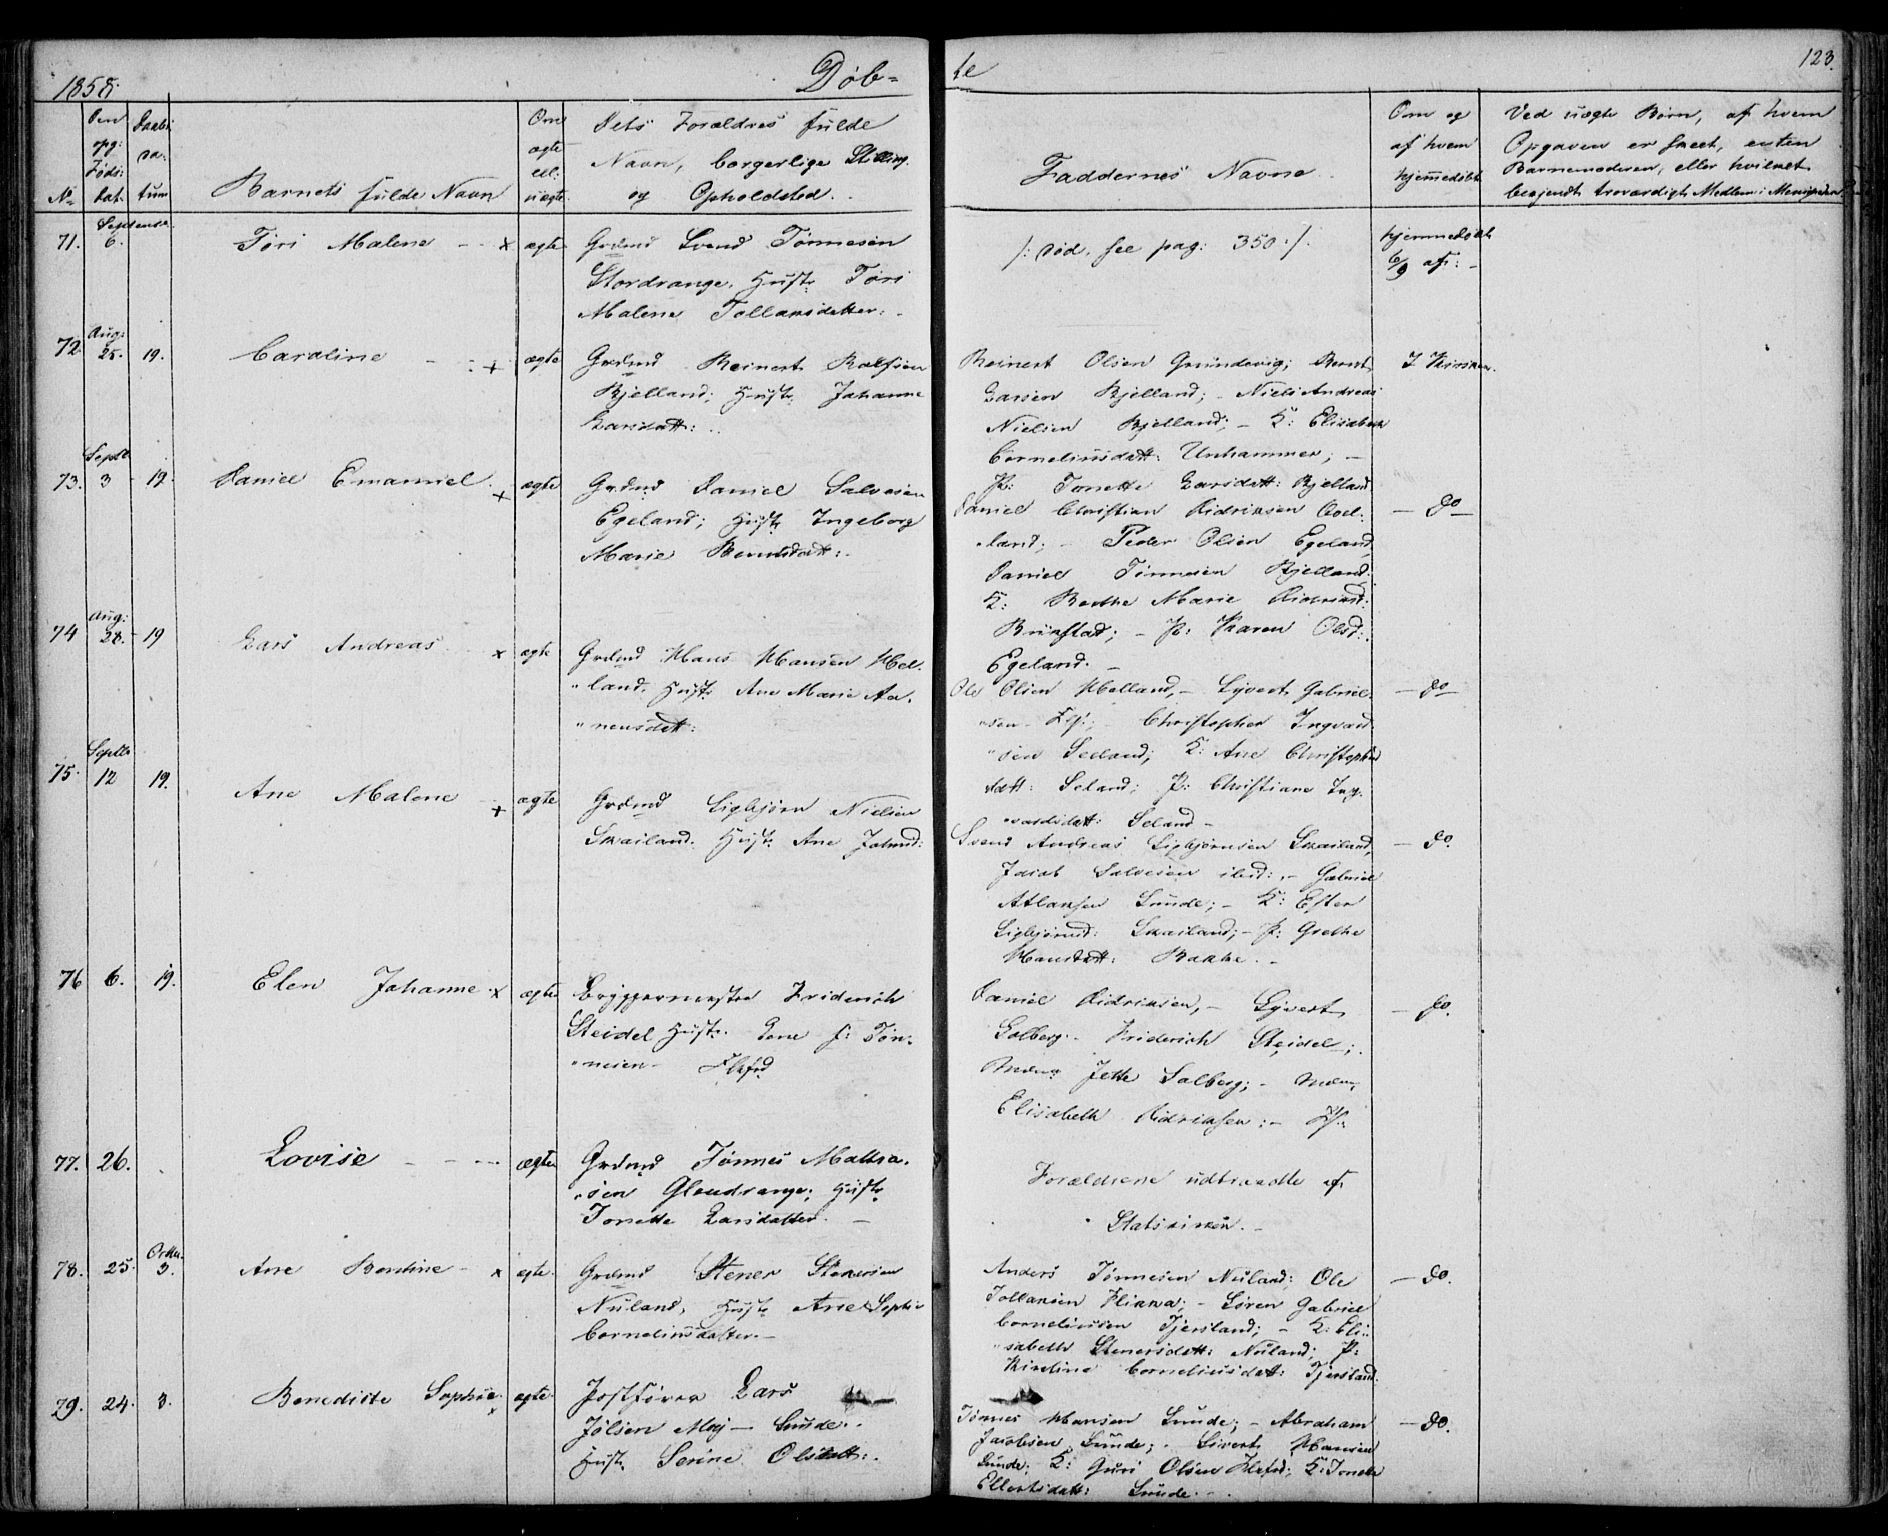 1858.
Døb=
te
123.
No
Den opg: Føds: dat.
Daabs da= tum
Barnets fulde Navn
Om ægte ell: uægte
Dets Forældres fulde
Navn, borgerlige Stilling
og Opholdsted.
Faddernes Navne
Om og af hvem hjemmedøbt
Ved uægte Børn, af hvem
Opgaven er skeet, enten
Barnemoderen, eller hvilket
troværdigt Medlem i Menigheden
71. Septembr 6. Tøri Malene - - x ægte Grdmd Svend Tønnesen
Stordrange, Hustr Tøri
Malene Tollaksdatter.
/: død, see pag: 350 :/.
hjemmedøbt 6/9 af: -
72 Aug: 25. 19. Caroline - - x ægte Grdmd Reinert Rolfsen
Bjelland; Hustr Johanne
Larsdatt:
Reinert Olsen Grundevig; Bernt
Larsen Bjelland; - Niels Andreas
Nielsen Bjelland; - K: Elisabeth
Corneliusdatt: Unhammer; -
P: Tonette Larsdatt: Bjelland
I Kirken.
73. Septbr 3 - 19. Daniel Emanuel. x ægte Grdmd Daniel Salvesen
Egeland; Hustr Ingeborg
Marie Berntsdatt:.
Daniel Christian Didriksen Qvel=
"land; - Peder Olsen Egeland,
Daniel Tønnesen Bjelland.
K: Berthe Marie Didriksd:
Birkstad; - P: Karen Olsd:
Egeland. -
- do -
74 Aug: 28. - 19 Lars Andreas x ægte Grdmd Hans Hansen Hel=
"land. Hustr Ane Marie Aa=
"nensdatt:
Ole Olsen Helland, - Sÿvert Gabriel=
"sen Christopher Ingvald
"sen Seeland; K: Ane Christophers
datt: Seland; P: Christiane Ing=
"valdsdatt: Seland -
- do -
75. Septbr 12 19. Ane Malene x ægte Grdmd Sigbjørn Nielsen
Skailand. Hustr Ane Jakobsd:
Svend Andreas Sigbjørnsen Skailand,
Jacob Salvesen ibid:, - Gabriel
Atlaksen Sunde; - K: Ester
Sigbjørnsd: Skailand; - P: Grethe
Hansdatt: Bakke. -
- do.
76 6. 19. Elen Johanne x ægte Brÿggermester Friderich
Steidel Hustr. Lene f: Tøn=
"nesen - Flkfrd
Daniel Didriksen, - Sÿvert
Solberg - Friderich Steidel;
Mdm: Jette Solberg; - Mdm:
Elisabeth Didriksen; -
- do.
77. 26. Lovise - - - ægte Grdmd Tønnes Mathia=
"sen Glendrange; Hustr
Tonette Larsdatter. -
Forældrene udtraadte af
Statskirken. -
78. 25. Octbr. 3. Ane Bertine - x ægte. Grdmd Stener Stenersen
Nuland, Hustr Ane Sophie
Corneliusdatter. -
Anders Tønnesen Nuland; Ole
Tollaksen Flikka; - Søren Gabriel
Corneliussen Tjersland; - K: Eli=
"sabeth Stenersdatt: Nuland; P:
Kirstine Corneliusdatt: Tjersland.
- do.
79. 24. 3. Benedicte Sophie. x ægte. Postfører Lars
Jölsen Moj - Sunde.
Hustr Serine Olsdatt:.
Tønnes Hansen Sunde; - Abraham
Jacobsen Sunde; - Sivert Hansen
Sunde; K: Guri Olsen Flkfrd; K: Tonette
Ellertsdatt: Sunde. -
- do.